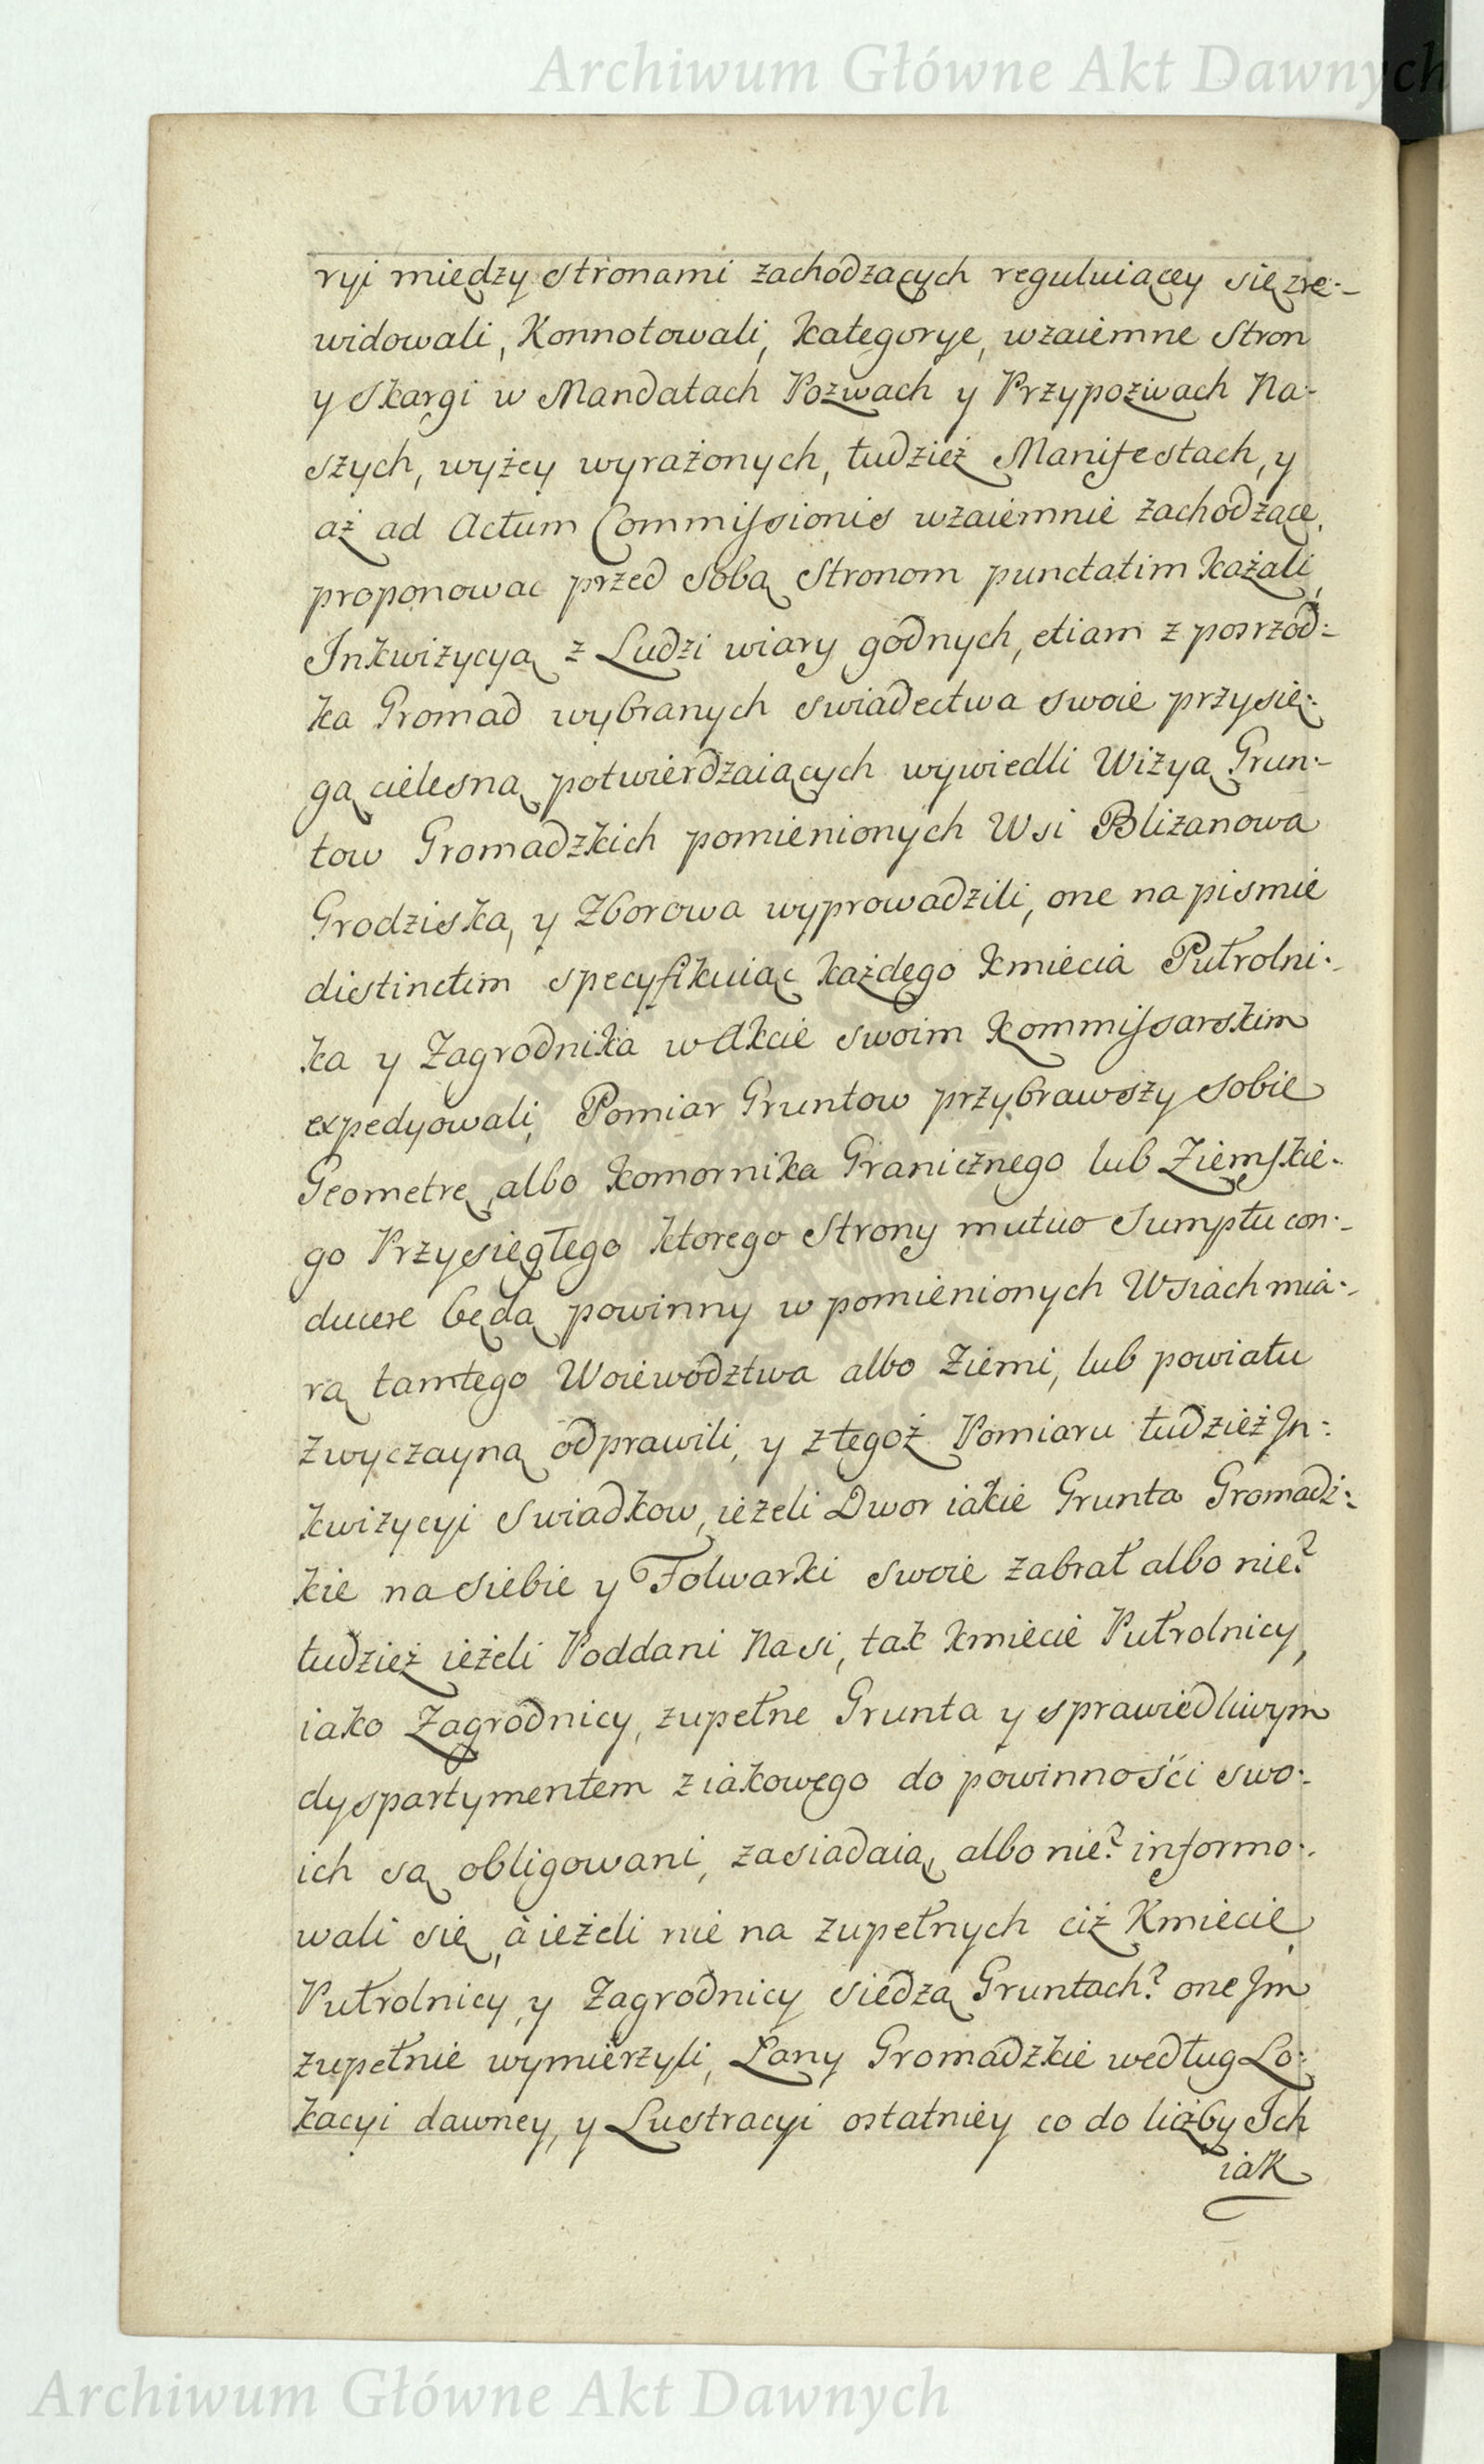 Archiwum Główne Akt Dawnych
ryi między stronami zachodzących reguluiącey się zre-
widowali, Konnotowali, kategorye, wzaiemne Stron
y Skargi w Mandatach Pozwach y Przypozwach Na-
szych, wyżey wyrażonych, tudzież Manifestach, y
aż ad Actum Commissionis wzaiemnie zachodzące,
proponowac przed sobą Stronom punctatim każali,
Inkwizycyą z Ludzi wiary godnych, etiam z posrzod-
ka Gromad wybranych swiadectwa swoie przysię-
gą cielesną potwierdzaiących wywiedli Wizyą Grun-
tow Gromadzkich pomienionych Wsi Blizanowa
Grodziska, y Zborowa wyprowadzili, one na pismie
distinctim specyfikuiąc każdego kmiecia Pułrolni-
ka y Zagrodnika w Akcie swoim kommissarskim
expedyowali, Pomiar Gruntow przybrawszy sobie
Geometrę albo komornika Granicznego lub Ziemskie-
go Przysięgłego ktorego Strony mutuo Sumptu con-
ducere będą powinny w pomienionych Wsiach mia-
rą tamtego Woiewodztwa albo Ziemi, lub powiatu
zwyczayną odprawili, y z tegoż Pomiaru tudzież In-
kwizycyi Swiadkow, ieżeli Dwor iakie Grunta Gromadz-
kie na siebie y Folwarki swoie zabrał albo nie?
tudzież ieżeli Poddani Nasi, tak kmiecie Pułrolnicy,
iako Zagrodnicy, zupełne Grunta y sprawiedliwym
dyspartymentem z iakowego do powinności swo-
ich są obligowani, zasiadaią, albo nie? informo-
wali się, à ieżeli nie na zupełnych ciż Kmiecie,
Pułrolnicy, y Zagrodnicy siedzą Gruntach? one Im
zupełnie wymierzyli, Łany Gromadzkie według Lo-
kacyi dawney, y Lustracyi ostatniey co do liczby Ich
iak
Archiwum Główne Akt Dawnych